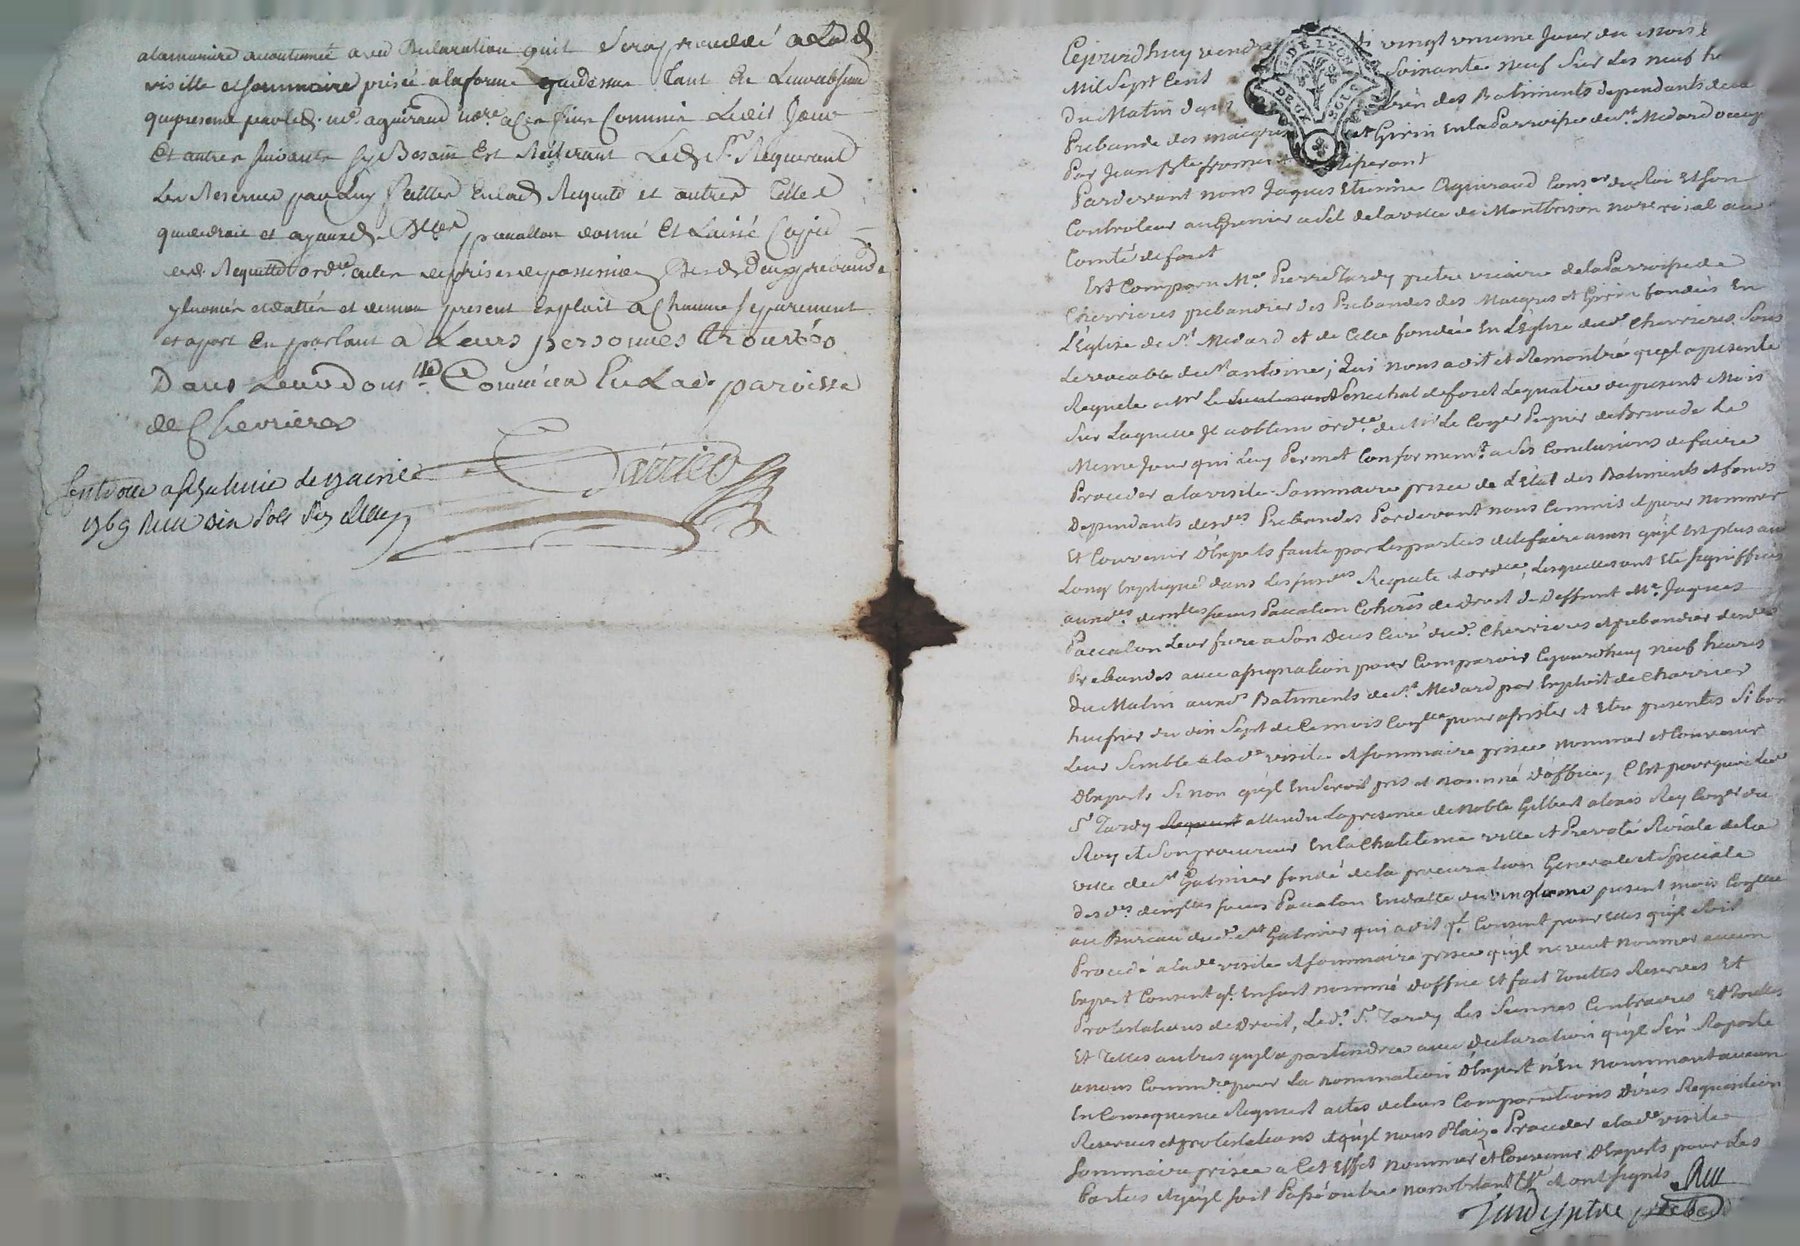 a la maniere accoutumée avec Declaration quil sera procedé a lad
visitte et sommaire prisée a la forme que dessus tant en leur absence
que presence par led. me. aguiraud nore. a ces fins Commis Ledit Jour
Et autres suivants sy Besoin Est Reiterant Led Sr. Requerant
Les Reserves par Luy faittes En lad Requete et autres telles
que de droit et ayant Paccallon donné Et Laissé Copie
Requette ordce. acte de prise de possession Desd. Deux prebande
y Enoncés et dattés et de mon present Exploit a Chacune separement
et apart En parlant a Leurs personnes trouvées
Dans Leur dom.lle Commun En Lad. paroisse
de Chevrieres
Charrier
Controllé a St Galmier le 17 avril
1769 Reçu dix sols six den
G. DE LYON
DEUX SOUS
Cejourdhuy vendre vingt unieme Jour du mois
Mil Sept Cent Soixante neuf Sur les neuf h
Du Matin dans des Batiments dependants de la
Prebande des macques et Girin En la Parroisse de St. Medard occupé
Par Jean Bte.
Pardevant nous Jaques Etienne Aguiraud Conser. du Roi Et son
Controleur au Grenier a Sel de la ville de Montbrison nore roial au
Comté de forest
Est Comparu Me. Pierre Tardy pretre vicaire de la Parroisse de
Chevrieres prebandier des Prebandes des Macques et Girin fondées En
L'Eglise de St. Medard et de Celle fondée En l'Eglise dud. Chevrieres Sous
Le vocable de St antoine, Qui nous a dit et Remontré qu'il a presenté
Requete a Mr Le Lieutenant Senechal de forest le quatre du present Mois
Sur Laquelle Il a obtenu ordce. de Mr Le Coger Papier de Le
Meme Jour qui luy Permet Conformemt. a Ses Conclusions de faire
Proceder a la visite Sommaire prisée de L'état des Batiments et fonds
Dependants desdes Prebandes Pardevant nous Commis et pour nommer
Et Convenir d'Experts faute par les parties de le faire ainsi qu'il Est plus au
Long Expliqué dans les susdes Requete et ordce, Lesquelles ont Eté signiffiées
auxdes. demlles soeurs Paccalon Coheres de droit de Deffunt Me. Jaques
Paccalon Leur frere a Son Deces Curé dud. Chevrieres et prebandier desdes
Prebandes avec assignation pour Comparoir Cejourdhuy neuf heures
Du Matin auxds Batiments de St. Medard par Exploit de Charrier
huissier du dix Sept de Ce mois Conllé pour assister et Etre presentes Si bon
Leur Semble a lade visite et sommaire prisée nommer et Convenir
d'Experts Si non qu'il En Seroit pris et nommé d'office, C'Est pourquoi Led
Sr Tardy Requiert attendu La presence de Noble Gilbert alexis Rey Coner du
Roy et Son procureur En la Chatelenie ville et Prevoté Roiale de la
ville de St Galmier fondé de la procuration Generale et Speciale
Desdes. demlles soeurs Paccalon En datte du vingtieme present mois Conllée
au Bureau dud. St Galmier qui a dit qe. Consent pour Elles qu'il Soit
Procedé a lade visite et sommaire prisée qu'il ne veut nommer aucun
Expert Consent qe. En soit nommé d'office Et fait touttes Reserves Et
Protestations de Droit, Led. Sr. Tardy Les Siennes Contraires Et touttes
Et Telles autres qu'il apartiendra avec declaration qu'il S'En Raporte
a nous Commre pour La nomination d'Expert n'En nommant aucun
En Consequence Requiert actes de leurs Comparutions dires Requisition
Reserves et protestations et qu'il nous Plaize Proceder a lade visite
Sommaire prisée a Cet Effet nommer et Convenir d'Experts pour Les
Parties et qu'il soit Passé outre nonobstant et ont signés Rey
Tardy ptre prebd